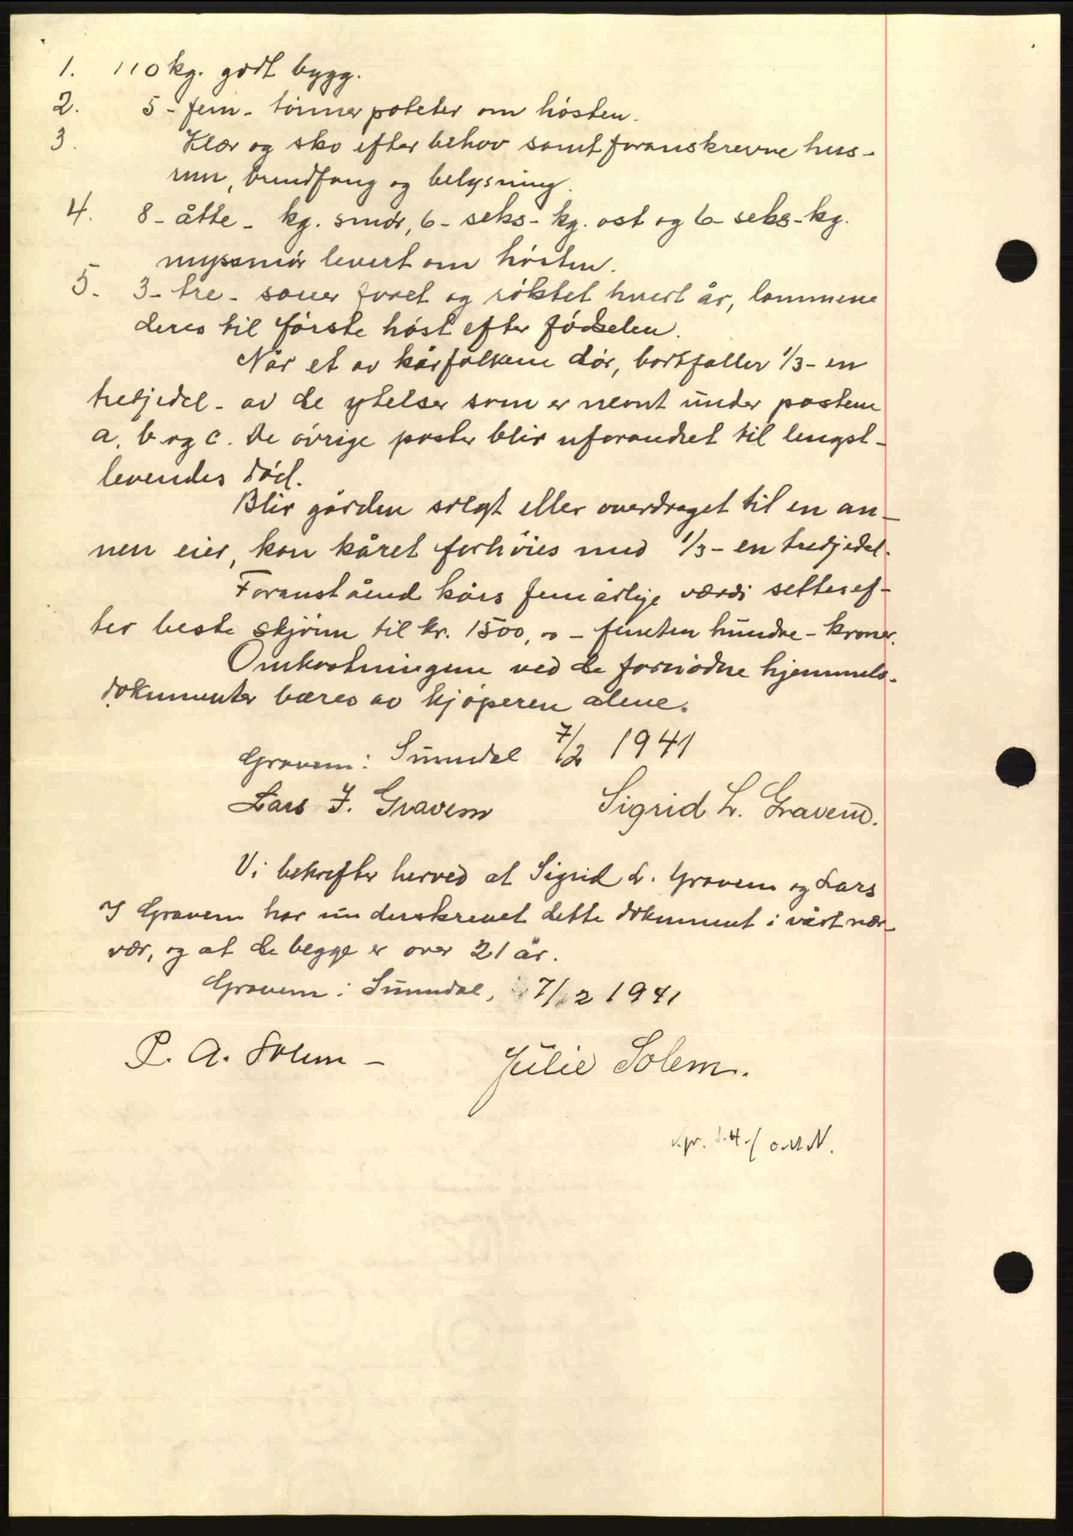 1. 110 kg. godt bygg.
2. 5 - fem - tönner poteter om hösten.
3. Klær og sko efter behov samt foranskrevne hus-
rum, brendfang og belysning.
4. 8 - åtte - kg. smör, 6 - seks - kg. ost og 6 seks - kg.
myssmör levert om hösten.
5. 3 - tre - sauer foret og röktet hvert år, lammene
deres til förste höst efter födselen.
Når et av kårfolkene dör, bortfaller 1/3 - en
tredjedel - av de ytelser som er nevnt under postene
a. b. og c. De övrige poster blir uforandret til lengst-
levendes död.
Blir gården solgt eller overdraget til en an-
nen eier, kan kåret forhöies med 1/3 - en tredjedel.
Foranstående kårs femårlige værdi settes ef-
ter beste skjönn til kr. 1500,00 - femten hundre - kroner.
Omkostningene ved de fornödne hjemmels-
dokumenter bæres av kjöperen alene.
Gravem i Sunndal 7/2 1941
Lars J. Gravem Sigrid L. Gravem.
Vi bekrefter herved at Sigrid L. Gravem og Lars
J Gravem har underskrevet dette dokument i vårt nær-
vær, og at de begge er over 21 år.
Gravem i Sunndal, 7/2 1941
P. A. Solem - Julie Solem.